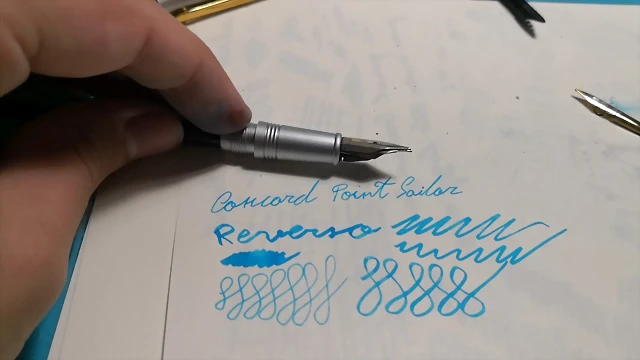 Concord Point Sailor
Reverso